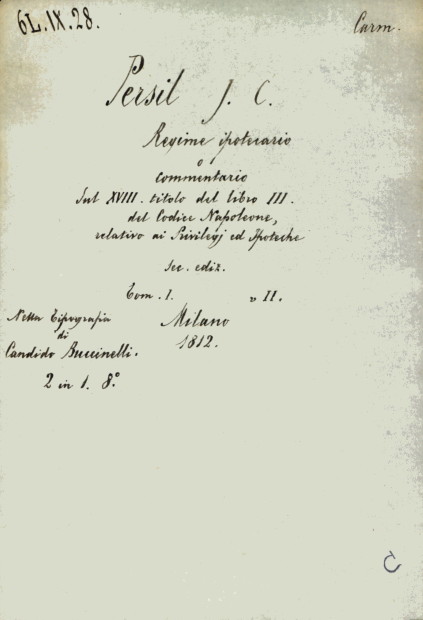 6L.IX.28.
Carm.
Persil J. C.
Regime ipotecario
o
commentario
sul XVIII. titolo del libro III.
del Codice Napoleone,
relativo ai Privilegj ed Ipoteche
sec. ediz.
Tom. I. „ II.
Milano
1812.
Nella Tipografia
di
Candido Buccinelli.
2 in 1. 8.º
C